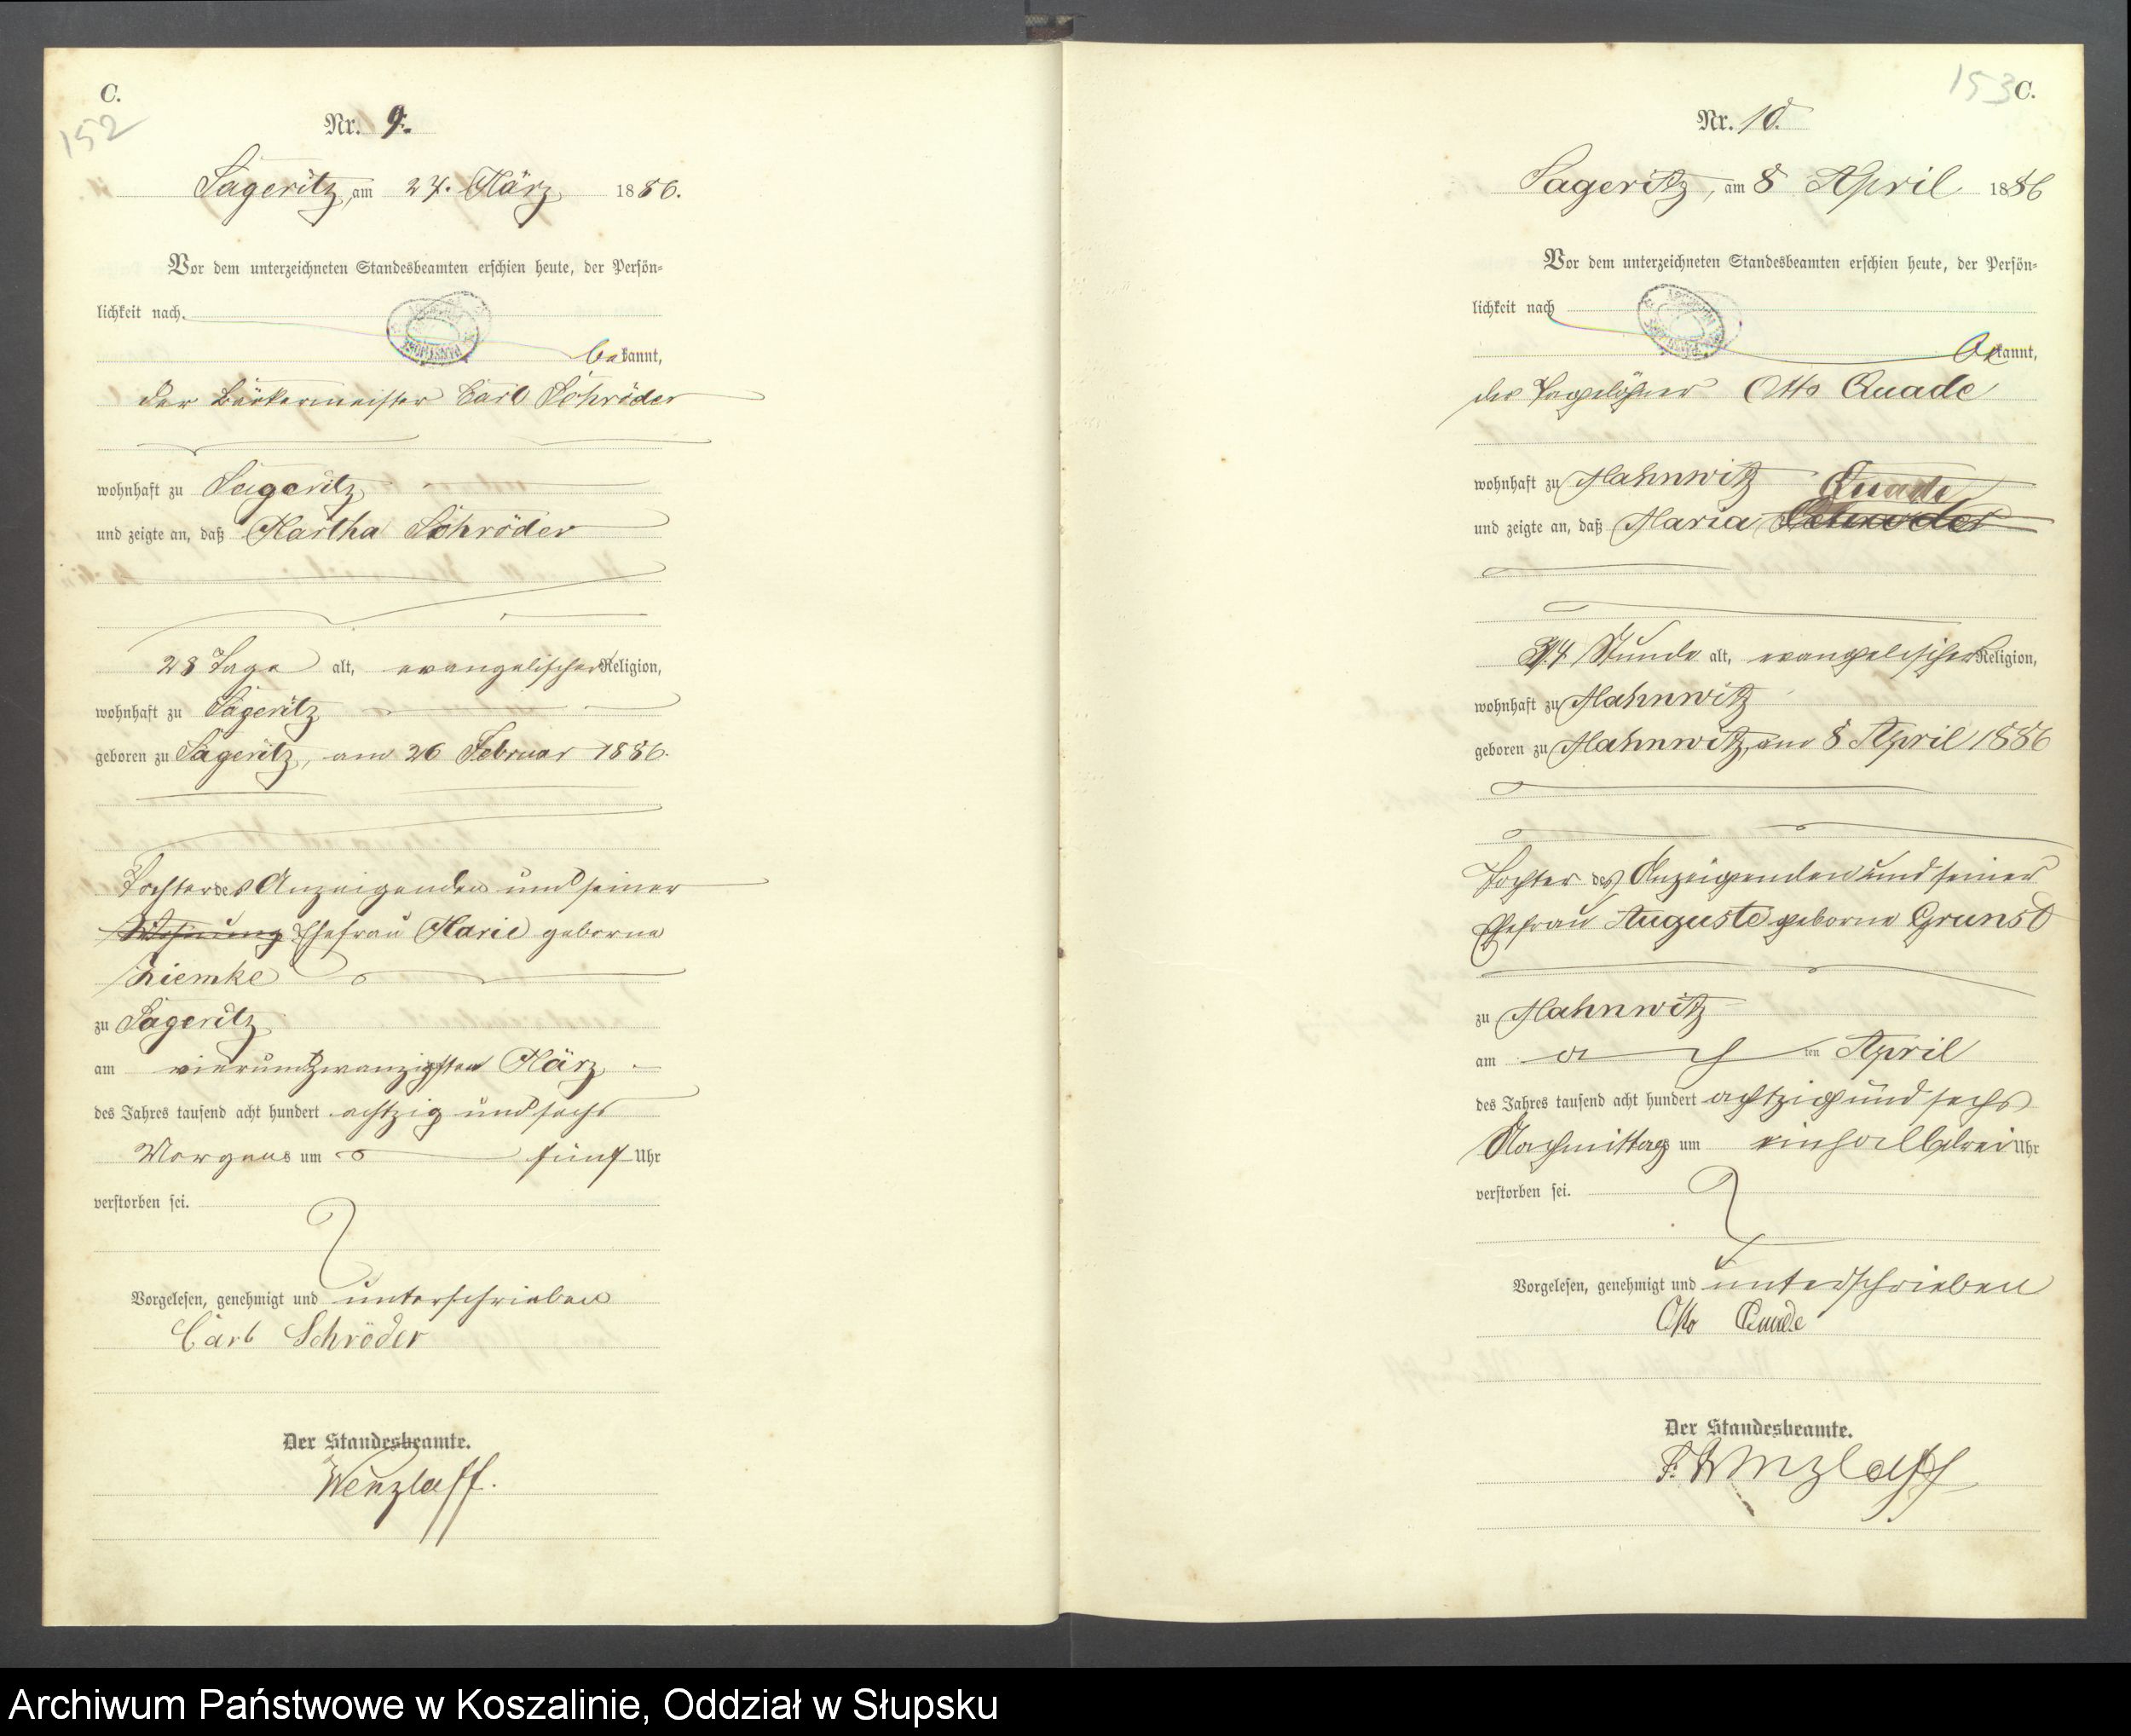 C.
152
Nr. 9.
Sageritz, am 24. März 1886.
Vor dem unterzeichneten Standesbeamten erschien heute, der Persön-
lichkeit nach
bekannt,
der Bäckermeister Carl Schröder
wohnhaft zu Sageritz
und zeigte an, daß Martha Schröder
28 Tage alt, evangelischer Religion,
wohnhaft zu Sageritz
geboren zu Sageritz, am 26 Februar 1886.
Tochter des Anzeigenden und seiner
Wohnung Ehefrau Marie geborne
Ziemke
zu Sageritz
am vierundzwanzigsten März
des Jahres tausend acht hundert achtzig und sechs
Morgens um fünf Uhr
verstorben sei.
Vorgelesen, genehmigt und unterschrieben
Carl Schröder
Der Standesbeamte.
Wenzlaff.
153 C.
Nr. 10.
Sageritz, am 8 April 1886
Vor dem unterzeichneten Standesbeamten erschien heute, der Persön-
lichkeit nach
bekannt,
der Tagelöhner Otto Quade
wohnhaft zu Mahnwitz
Quade
und zeigte an, daß Maria Schröder
3/4 Stunde alt, evangelischer Religion,
wohnhaft zu Mahnwitz
geboren zu Mahnwitz, am 8 April 1886
Tochter des Anzeigenden und seiner
Ehefrau Auguste geborne Grunst
zu Mahnwitz
am ten April
des Jahres tausend acht hundert achtzig und sechs
Nachmittags um einhalbdrei Uhr
verstorben sei.
Vorgelesen, genehmigt und unterschrieben
Otto Quade
Der Standesbeamte.
F. Wenzlaff
Archiwum Państwowe w Koszalinie, Oddział w Słupsku